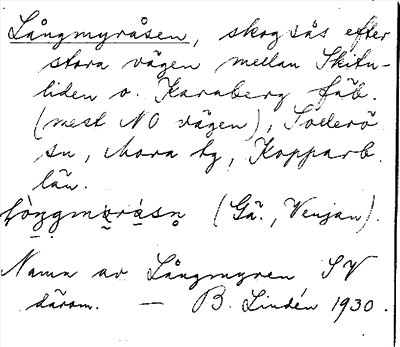 Långmyråsen, skogsås efter
stora vägen mellan Skitu-
liden o. Karaberg fäb.
(mest NO vägen), Söderö
sn, Mora tg, Kopparb.
län.
(Gä., Venjan).
Namn av Långmyren SV
därom. — B. Lindén 1930.